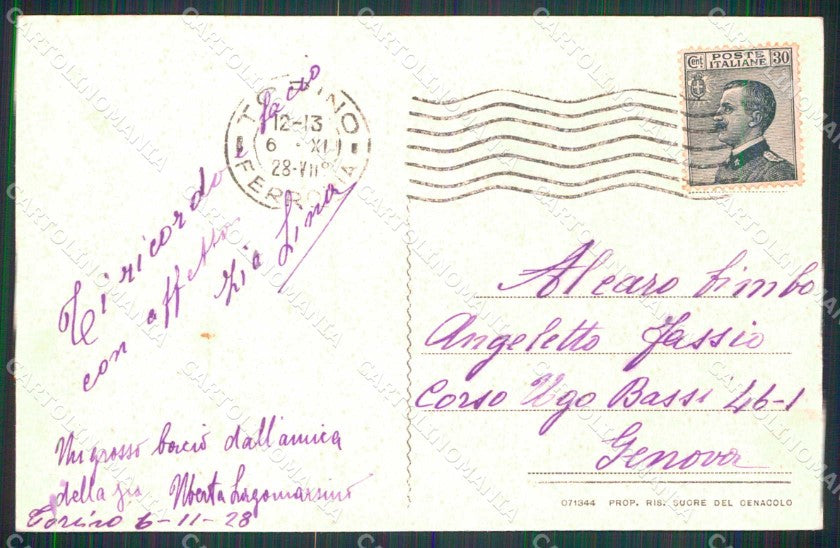 Ti ricordo
con affetto
Zia Lina
bacio
TORINO
12-13
6 · XI
28-VII°
FERROVIA
POSTE
ITALIANE
Cent. 30
Al caro bimbo
Angeletto Fassio
Corso Ugo Bassi 46-1
Genova
Un grosso bacio dall'amica
della zia Uberta Lagomarsino
Torino 6-11-28
071344 PROP. RIS. SUORE DEL CENACOLO
CARTOLINOMANIA